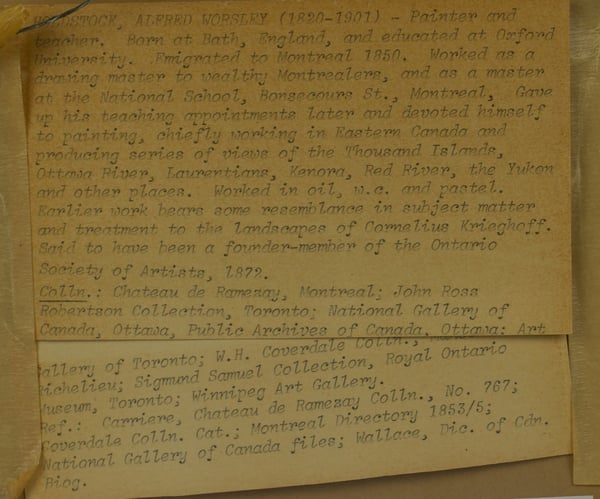 ALFRED WORSLEY (1820-1901) - Painter and
teacher. Born at Bath, England, and educated at Oxford
University. Emigrated to Montreal 1850. Worked as a
drawing master to wealthy Montrealers, and as a master
at the National School, Bonsecours St., Montreal, Gave
up his teaching appointments later and devoted himself
to painting, chiefly working in Eastern Canada and
producing series of views of the Thousand Islands,
Ottawa River, Laurentians, Kenora, Red River, the Yukon
and other places. Worked in oil, w.c. and pastel.
Earlier work bears some resemblance in subject matter
and treatment to the landscapes of Cornelius Krieghoff.
Said to have been a founder-member of the Ontario
Society of Artists, 1872.
Colln.: Chateau de Ramezay, Montreal; John Ross
Robertson Collection, Toronto; National Gallery of
Canada, Ottawa, Public Archives of Canada, Ottawa; Art
Gallery of Toronto; W.H. Coverdale Colln.,
Richelieu; Sigmund Samuel Collection, Royal Ontario
Museum, Toronto; Winnipeg Art Gallery.
Ref.: Carriere, Chateau de Ramezay Colln., No. 767;
Coverdale Colln. Cat.; Montreal Directory 1853/5;
National Gallery of Canada files; Wallace, Dic. of Cdn.
Biog.